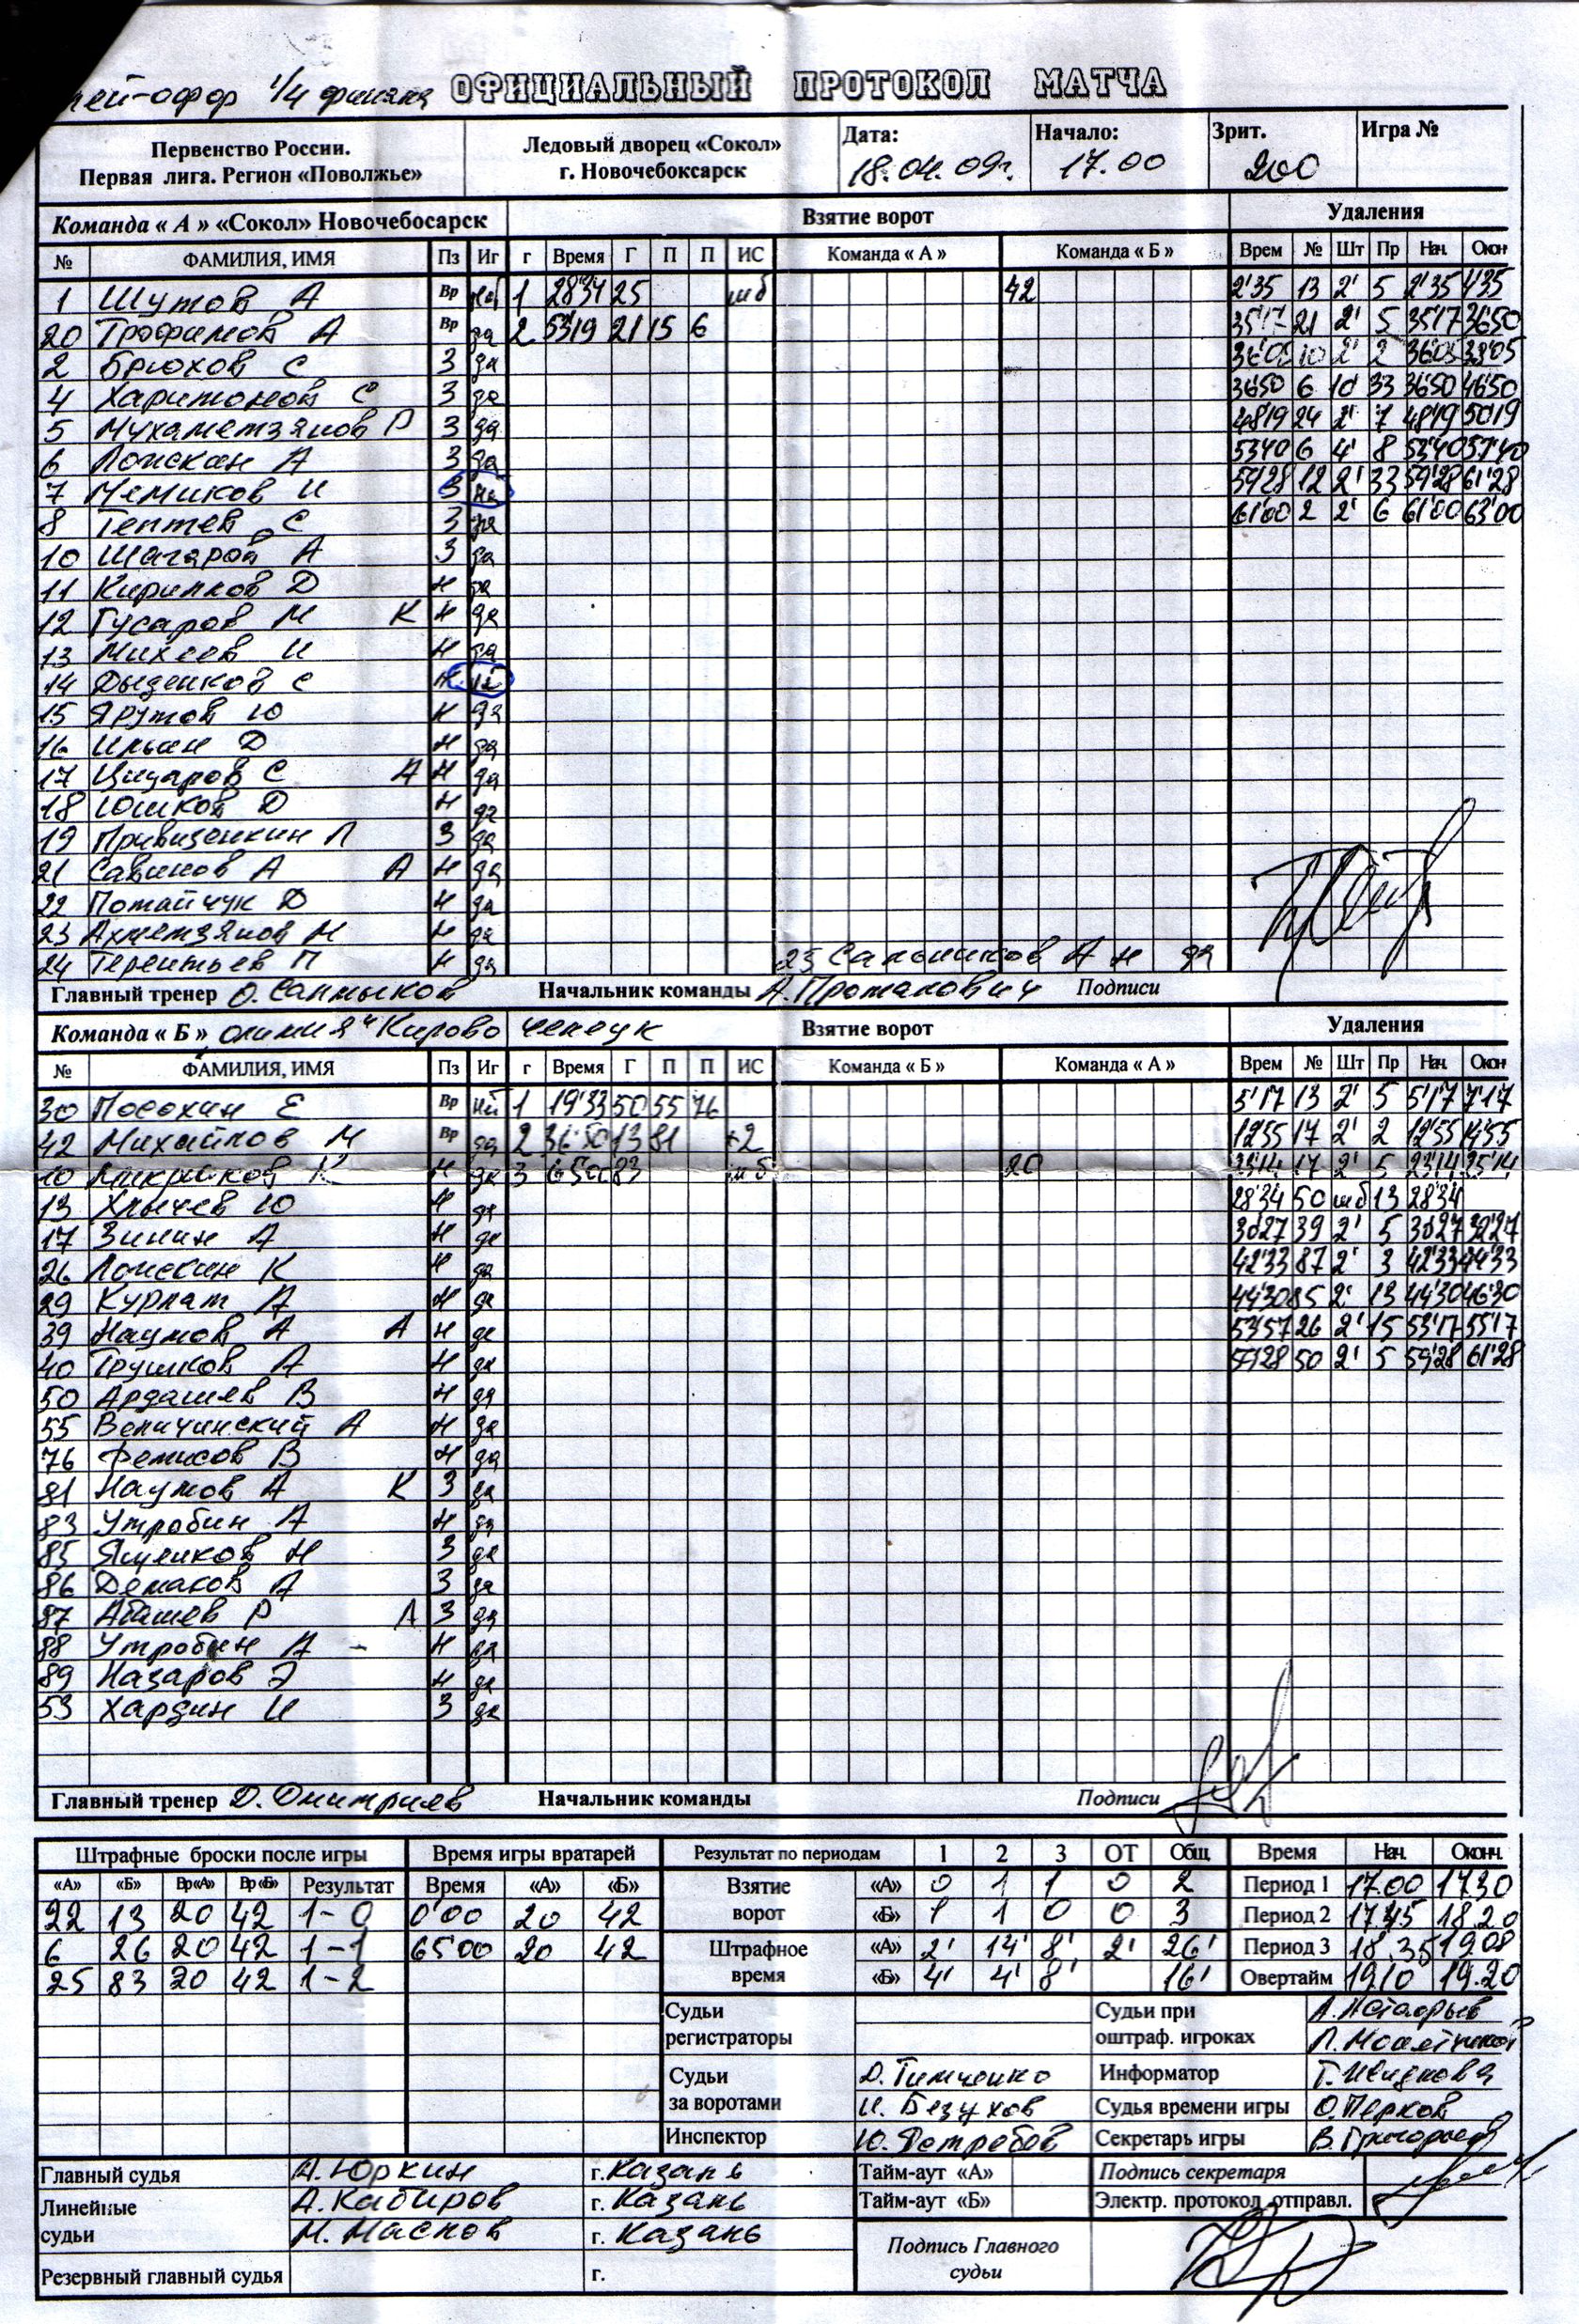 1/4 финала ОФИЦИАЛЬНЫЙ ПРОТОКОЛ МАТЧА
Первенство России. Первая лига. Регион «Поволжье»
Ледовый дворец «Сокол» г. Новочебоксарск
Дата: 18.04.09г.
Начало: 17.00
Зрит. 200
Игра №
Команда « А » «Сокол» Новочебосарск Взятие ворот Удаления
№ ФАМИЛИЯ, ИМЯ Пз Иг г Время Г П П ИС Команда « А » Команда « Б » Врем № Шт Пр Нач. Окон
1 Шутов А Вр 1 28'34 25 шб 42 2'35 13 2' 5 2'35 4'35
20 Трофимов А Вр да 2 53'19 21 15 6 35'17 21 2' 5 35'17 36'50
2 Брюхов С З да 36'05 10 2' 2 36'05 38'05
4 Харитонов С З да 36'50 6 10 33 36'50 46'50
5 Мухаметзянов Р З да 48'19 24 2' 7 48'19 50'19
6 Лоскан А З да 53'40 6 4' 8 53'40 57'40
7 Мемиков И З 59'28 12 2' 33 59'28 61'28
8 Гептев С З да 61'00 2 2' 6 61'00 63'00
10 Шагаров А З да
11 Кирилков Д Н да
12 Гусаров М К Н да
13 Михеев И Н да
14 Дыденков С Н
15 Ярутов Ю Н да
16 Ильин Д Н да
17 Цицаров С А Н да
18 Юшков Д Н да
19 Привизенкин Л З да
21 Савинов А А Н да
22 Потайчук Д Н да
23 Ахметзянов М Н да
24 Терентьев П Н да 25 Сальников А Н да
Главный тренер О. Салмыков Начальник команды А. Протакович Подписи
Команда « Б » Олимпия" Кирово Чепецк Взятие ворот Удаления
№ ФАМИЛИЯ, ИМЯ Пз Иг г Время Г П П ИС Команда « Б » Команда « А » Врем № Шт Пр Нач. Окон
30 Посохин Е Вр 1 19'33 50 55 76 5'17 13 2' 5 5'17 7'17
42 Михайлов М Вр да 2 36'50 13 81 +2 12'55 17 2' 2 12'55 14'55
10 Н да 3 65'00 83 шб 20 23'14 17 2' 5 23'14 25'14
13 Хлычев Ю Н да 28'34 50 шб 13 28'34
17 Зинин А Н да 30'27 39 2' 5 30'27 32'27
26 Лоскин К Н да 42'33 87 2' 3 42'33 44'33
29 Курпат А Н да 44'30 85 2' 13 44'30 46'30
39 Наумов А А Н да 53'57 26 2' 15 53'17 55'17
40 Трушков А Н да 59'28 50 2' 5 59'28 61'28
50 Ардашев В Н да
55 Величинский А Н да
76 Фетисов В Н да
81 Наумов А К З да
83 Утробин А Н да
85 Ященков Н З да
86 Демаков А З да
87 Абашев Р А З да
88 Утробин А - Н да
89 Назаров Э Н да
53 Хардин И З да
Главный тренер Д. Дмитриев Начальник команды Подписи
Штрафные броски после игры Время игры вратарей Результат по периодам 1 2 3 ОТ Общ. Время Нач. Оконч.
«А» «Б» Вр«А» Вр«Б» Результат Время «А» «Б» Взятие ворот «А» 0 1 1 0 2 Период 1 17.00 17.30
22 13 20 42 1-0 0'00 20 42 «Б» 1 1 0 0 3 Период 2 17.45 18.20
6 26 20 42 1-1 65'00 20 42 Штрафное время «А» 2' 14' 8' 2' 26' Период 3 18.35 19.08
25 83 20 42 1-2 «Б» 4' 4' 8' 16' Овертайм 19.10 19.20
Судьи регистраторы
Судьи при оштраф. игроках
Судьи за воротами Д. Тимченко
И. Безухов
Информатор
Судья времени игры О. Перков
Инспектор Ю. Ястребов Секретарь игры В. Григорьев
Главный судья А. Юркин г. Казань Тайм-аут «А» Подпись секретаря
Линейные судьи А. Кабиров г. Казань Тайм-аут «Б» Электр. протокол отправл.
М. Маслов г. Казань
Подпись Главного судьи
Резервный главный судья г.